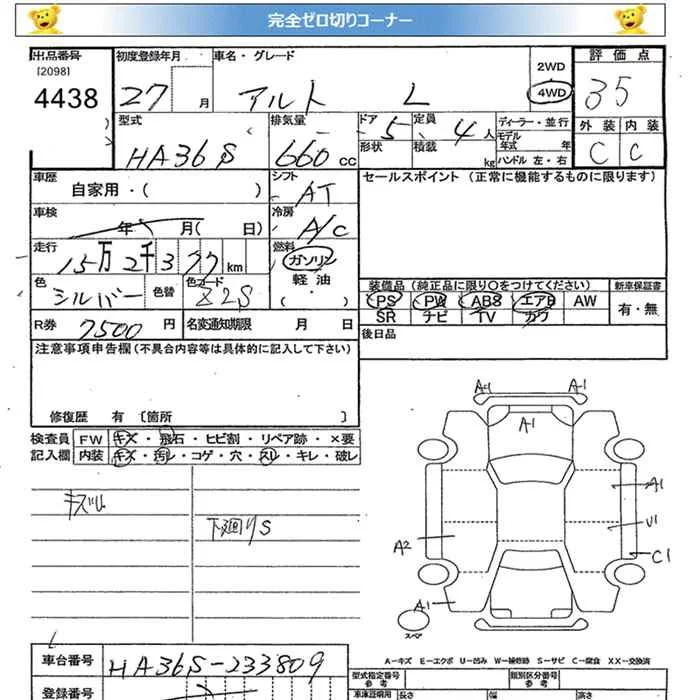 完全ゼロ切りコーナー
出品番号 初度登録年月 車名・グレード 2WD 評価点
[2098] 27 月 アルト L 4WD 35
4438
型式 排気量 ドア 5 定員 4人 ディーラー・並行 外装 内装
HA36S 660cc 形状 積載 kg モデル年式 年 C C
ハンドル 左・右
車歴 自家用・( ) シフト AT セールスポイント (正常に機能するものに限ります)
車検 年 月( 日) 冷房 A/C
走行 15万2千377km 燃料 ガソリン
軽油
・( )
色 シルバー 色替 色コード Z2S 装備品 (純正品に限り○をつけてください) 新車保証書
PS PW ABS エアB AW 有・無
SR ナビ TV カワ
R券 7500円 名変通知期限 月 日 後日品
注意事項申告欄(不具合内容等は具体的に記入して下さい)
修復歴 有 〔箇所 〕
検査員 FW キズ・飛石・ヒビ割・リペア跡・×要
記入欄 内装 キズ・汚レ・コゲ・穴・スレ・キレ・破レ
下廻りS
A1 A1
A1
A1
U1
A2
C1
A1
スペア
A-キズ E-エクボ U-凹み W-補修跡 S-サビ C-腐食 XX-交換済
車台番号 HA36S-233809 型式指定番号 参考 類別区分番号 参考
登録番号 車庫証明用 長さ 幅 高さ